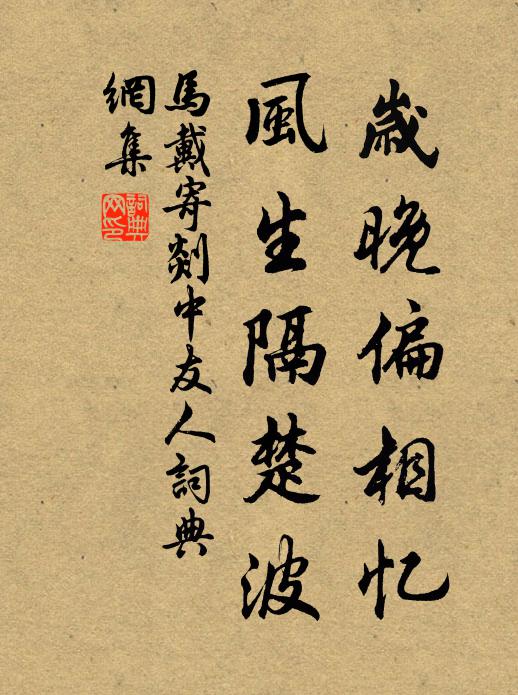 歲晚偏相忆
風生隔楚波
馬戴寄剡中友人詞典
網集
詞典网印